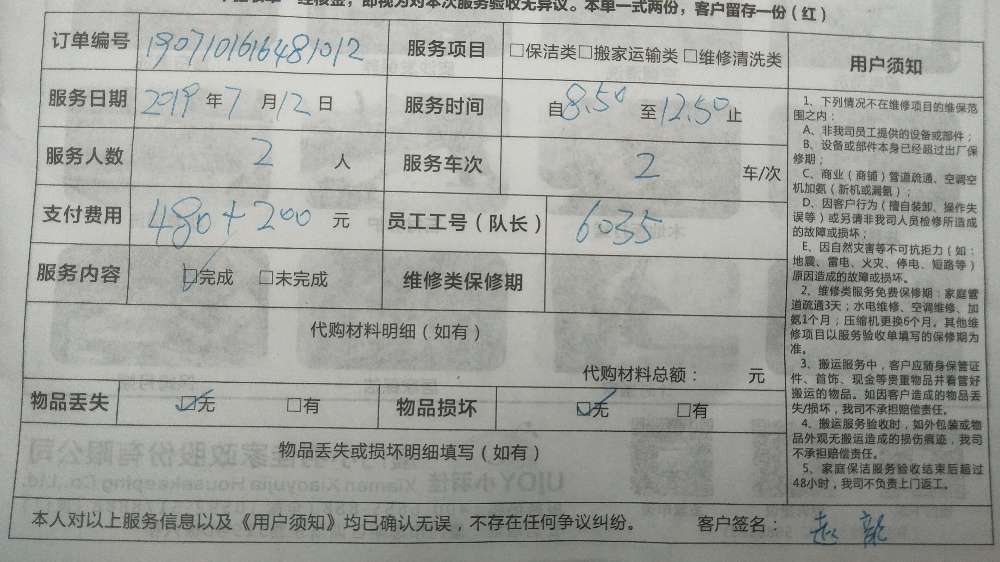 经核签，即视为对本次服务验收无异议。本单一式两份，客户留存一份（红）
订单编号 190710161648​1012 服务项目 □保洁类□搬家运输类 □维修清洗类
服务日期 2019 年 7 月 12 日 服务时间 自 8.50 至 12.50 止
服务人数 2 人 服务车次 2 车/次
支付费用 480+200 元 员工工号（队长） 6035
服务内容 ☑完成 □未完成 维修类保修期
代购材料明细（如有）
代购材料总额： 元
物品丢失 ☑无 □有 物品损坏 ☑无 □有
物品丢失或损坏明细填写（如有）
本人对以上服务信息以及《用户须知》均已确认无误，不存在任何争议纠纷。 客户签名： 赵龍
用户须知
1、下列情况不在维修项目的维保范
围之内：
A、非我司员工提供的设备或部件；
B、设备或部件本身已经超过出厂保
修期；
C、商业（商铺）管道疏通、空调空
机加氨（新机或漏氨）；
D、因客户行为（擅自装卸、操作失
误等）或另请非我司人员检修所造成
的故障或损坏；
E、因自然灾害等不可抗拒力（如：
地震、雷电、火灾、停电、短路等）
原因造成的故障或损坏。
2、维修类服务免费保修期：家庭管
道疏通3天；水电维修、空调维修、加
氨1个月；压缩机更换6个月。其他维
修项目以服务验收单填写的保修期为
准。
3、搬运服务中，客户应随身保管证
件、首饰、现金等贵重物品并看管好
搬运的物品。如因客户造成的物品丢
失/损坏，我司不承担赔偿责任。
4、搬运服务验收时，如外包装或物
品外观无搬运造成的损伤痕迹，我司
不承担赔偿责任。
5、家庭保洁服务验收结束后超过
48小时，我司不负责上门返工。